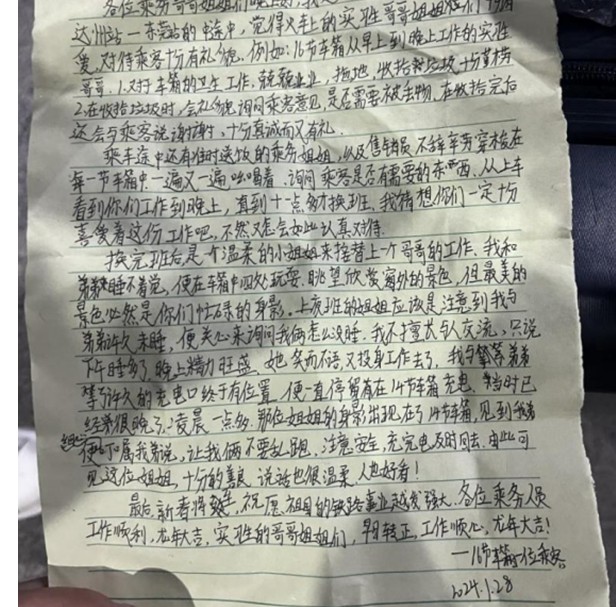 各位乘务哥哥姐姐们晚上好，我
达州站—东莞站的中途中，觉得火车上的实班哥哥姐姐们十分
爱，对待乘客十份有礼貌。例如：16节车箱从早上到晚上工作的实班
哥哥：1.对于车箱的卫生工作，兢兢业业，拖地，收拾垃圾十分勤
2.在收拾垃圾时，会礼貌询问乘客意见，是否需要被丢物，在收拾完后
还会与乘客说谢谢，十份真诚而又有礼。
乘车途中还有准时送饭的乘务姐姐，以及售销员不辞辛劳穿梭在
每一节车箱中一遍又一遍吆喝着，询问乘客是否有需要的东西。从上车
看到你们工作到晚上，直到十一点多才换班。我猜想你们一定十分
喜爱着这份工作吧，不然又怎会如此认真对待。
换完班后是个温柔的小姐姐来接替上一个哥哥的工作。我和
弟弟睡不着觉，便在车箱中四处玩耍。眺望欣赏窗外的景色，但最美的
景色必然是你们忙碌的身影。上夜班的姐姐应该是注意到我与
弟弟许久未睡，便关心来询问我俩怎么没睡。我不擅长与人交流，只说
下午睡多了，晚上精力旺盛。她笑而不语又投身工作去了。我与弟弟
等了许久的充电口终于有位置，便一直停留在14节车箱充电，当时已
经很晚了，凌晨一点多，那位姐姐的身影出现在了14节车箱，见到我弟
便叮嘱我弟说，让我俩不要乱跑，注意安全，充完电及时回去。由此可
见这位姐姐，十分的善良，说话也很温柔，人也好看！
最后，新春将至，祝愿祖国的铁路事业越发强大，各位乘务人员
工作顺利，龙年大吉，实班的哥哥姐姐们，早日转正，工作顺心，龙年大吉！
—16节车箱一位乘客
2024.1.28